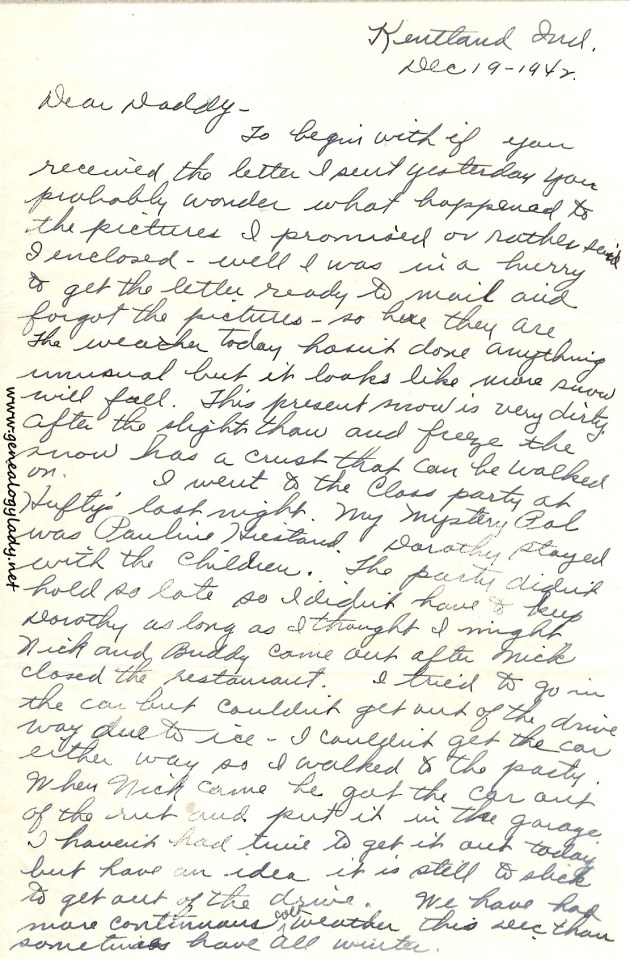 Kentland Ind.
Dec 19-1942.
Dear Daddy-
To begin with if you
received the letter I sent yesterday you
probably wonder what happened to
the pictures I promised or rather said
I enclosed - well I was in a hurry
to get the letter ready to mail and
forgot the pictures - so here they are
The weather today hasn't done anything
unusual but it looks like more snow
will fall. This present snow is very dirty
after the slight thaw and freeze the
snow has a crust that can be walked
on. I went to the Class party at
Hufty's last night. My Mystery Pal
was Pauline Hiestand. Dorothy stayed
with the children. The party didn't
hold so late so I didn't have to keep
Dorothy as long as I thought I might
Nick and Buddy came out after Nick
closed the restaurant. I tried to go in
the car but couldn't get out of the drive
way due to ice - I couldn't get the car
either way so I walked to the party.
When Nick came he got the car out
of the rut and put it in the garage
I haven't had time to get it out today
but have an idea it is still to slick
to get out of the drive. We have had
more continuous cold weather this Dec than
sometimes have all winter.
www.genealogylady.net